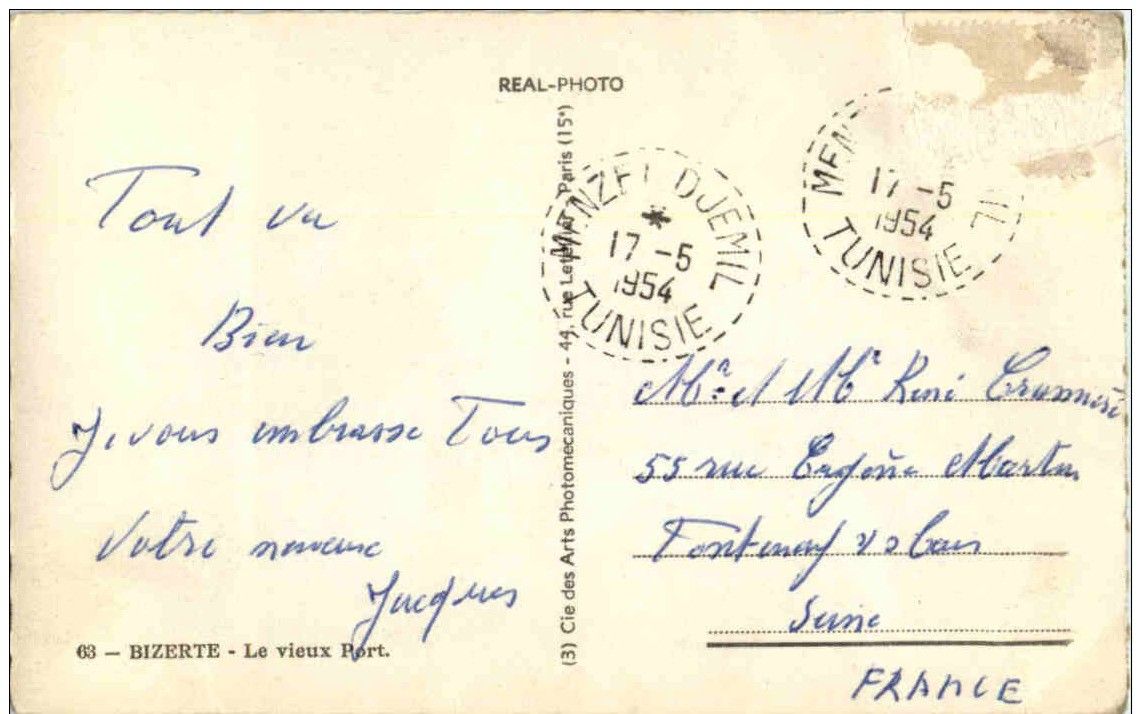 REAL-PHOTO
MENZEL DJEMIL
17-5
1954
TUNISIE
MEN IL
17-5
1954
TUNISIE
Tout va
Bien
Je vous embrasse Tous
Votre neveux
Jacques
63 — BIZERTE - Le vieux Port.
(3) Cie des Arts Photomecaniques - 44, rue Letellier - Paris (15e)
Mr et Mme René
55 rue Martin
Fontenay s/s bois
Seine
FRANCE